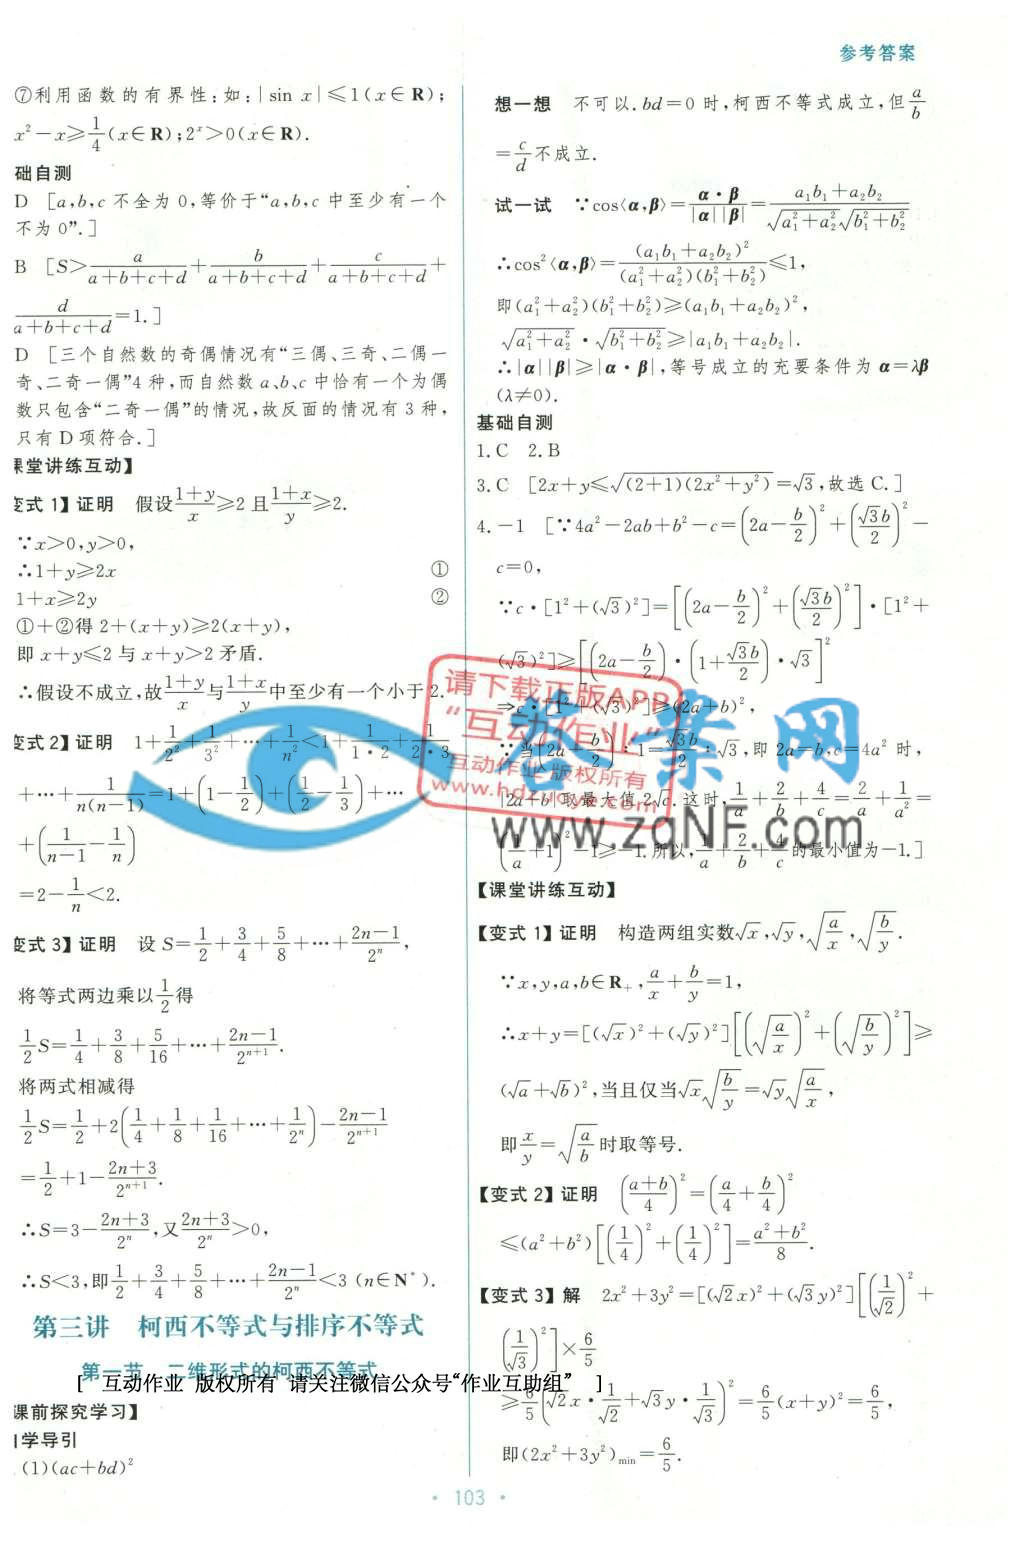 参考答案
⑦利用函数的有界性:如:|sin x|≤1(x∈R);
x²-x≥1/4(x∈R);2ˣ>0(x∈R).
础自测
D [a,b,c 不全为 0,等价于“a,b,c 中至少有一个
不为 0”.]
B [S>a/(a+b+c+d)+b/(a+b+c+d)+c/(a+b+c+d)+
d/(a+b+c+d)=1.]
D [三个自然数的奇偶情况有“三偶、三奇、二偶一
奇、二奇一偶”4 种,而自然数 a、b、c 中恰有一个为偶
数只包含“二奇一偶”的情况,故反面的情况有 3 种,
只有 D 项符合.]
课堂讲练互动】
变式 1】证明 假设(1+y)/x≥2 且(1+x)/y≥2.
∵x>0,y>0,
∴1+y≥2x ①
1+x≥2y ②
①+②得 2+(x+y)≥2(x+y),
即 x+y≤2 与 x+y>2 矛盾.
∴假设不成立,故(1+y)/x与(1+x)/y中至少有一个小于 2.
变式 2】证明 1+1/2²+1/3²+…+1/n²<1+1/(1·2)+1/(2·3)
+…+1/(n(n-1))=1+(1-1/2)+(1/2-1/3)+…
+(1/(n-1)-1/n)
=2-1/n<2.
变式 3】证明 设 S=1/2+3/4+5/8+…+(2n-1)/2ⁿ,
将等式两边乘以1/2得
1/2S=1/4+3/8+5/16+…+(2n-1)/2ⁿ⁺¹.
将两式相减得
1/2S=1/2+2(1/4+1/8+1/16+…+1/2ⁿ)-(2n-1)/2ⁿ⁺¹
=1/2+1-(2n+3)/2ⁿ⁺¹.
∴S=3-(2n+3)/2ⁿ,又(2n+3)/2ⁿ>0,
∴S<3,即1/2+3/4+5/8+…+(2n-1)/2ⁿ<3 (n∈N*).
第三讲 柯西不等式与排序不等式
第一节 二维形式的柯西不等式
[ 互动作业 版权所有 请关注微信公众号“作业互助组” ]
课前探究学习】
学导引
(1)(ac+bd)²
想一想 不可以.bd=0 时,柯西不等式成立,但a/b
=c/d不成立.
试一试 ∵cos⟨α,β⟩=α·β/(|α||β|)=(a₁b₁+a₂b₂)/(√(a₁²+a₂²)√(b₁²+b₂²))
∴cos²⟨α,β⟩=(a₁b₁+a₂b₂)²/((a₁²+a₂²)(b₁²+b₂²))≤1,
即(a₁²+a₂²)(b₁²+b₂²)≥(a₁b₁+a₂b₂)²,
√(a₁²+a₂²)·√(b₁²+b₂²)≥|a₁b₁+a₂b₂|.
∴|α||β|≥|α·β|,等号成立的充要条件为 α=λβ
(λ≠0).
基础自测
1.C 2.B
3.C [2x+y≤√((2+1)(2x²+y²))=√3,故选 C.]
4.-1 [∵4a²-2ab+b²-c=(2a-b/2)²+(√3b/2)²-
c=0,
∵c·[1²+(√3)²]=[(2a-b/2)²+(√3b/2)²]·[1²+
(√3)²]≥[(2a-b/2)·(1+√3b/2)·√3]²
⇒c·[1²+(√3)²]≥(2a+b)²,
∵当(2a+b/2):1=√3b/2:√3,即 2a=b,c=4a² 时,
|2a+b|取最大值 2√c.这时,1/a+2/b+4/c=2/a+1/a²=
(1/a+1)²-1≥-1.所以,1/a+2/b+4/c的最小值为-1.]
请下载正版APP
“互动作业”
互动作业 版权所有
www.hdzuoye.com
答案网
www.zqNF.com
【课堂讲练互动】
【变式 1】证明 构造两组实数√x,√y,√(a/x),√(b/y).
∵x,y,a,b∈R₊,a/x+b/y=1,
∴x+y=[(√x)²+(√y)²][(√(a/x))²+(√(b/y))²]≥
(√a+√b)²,当且仅当√x√(b/y)=√y√(a/x),
即x/y=√(a/b)时取等号.
【变式 2】证明 ((a+b)/4)²=(a/4+b/4)²
≤(a²+b²)[(1/4)²+(1/4)²]=(a²+b²)/8.
【变式 3】解 2x²+3y²=[(√2x)²+(√3y)²][(1/√2)²+
(1/√3)²]×6/5
≥6/5(√2x·1/√2+√3y·1/√3)²=6/5(x+y)²=6/5,
即(2x²+3y²)min=6/5.
· 103 ·